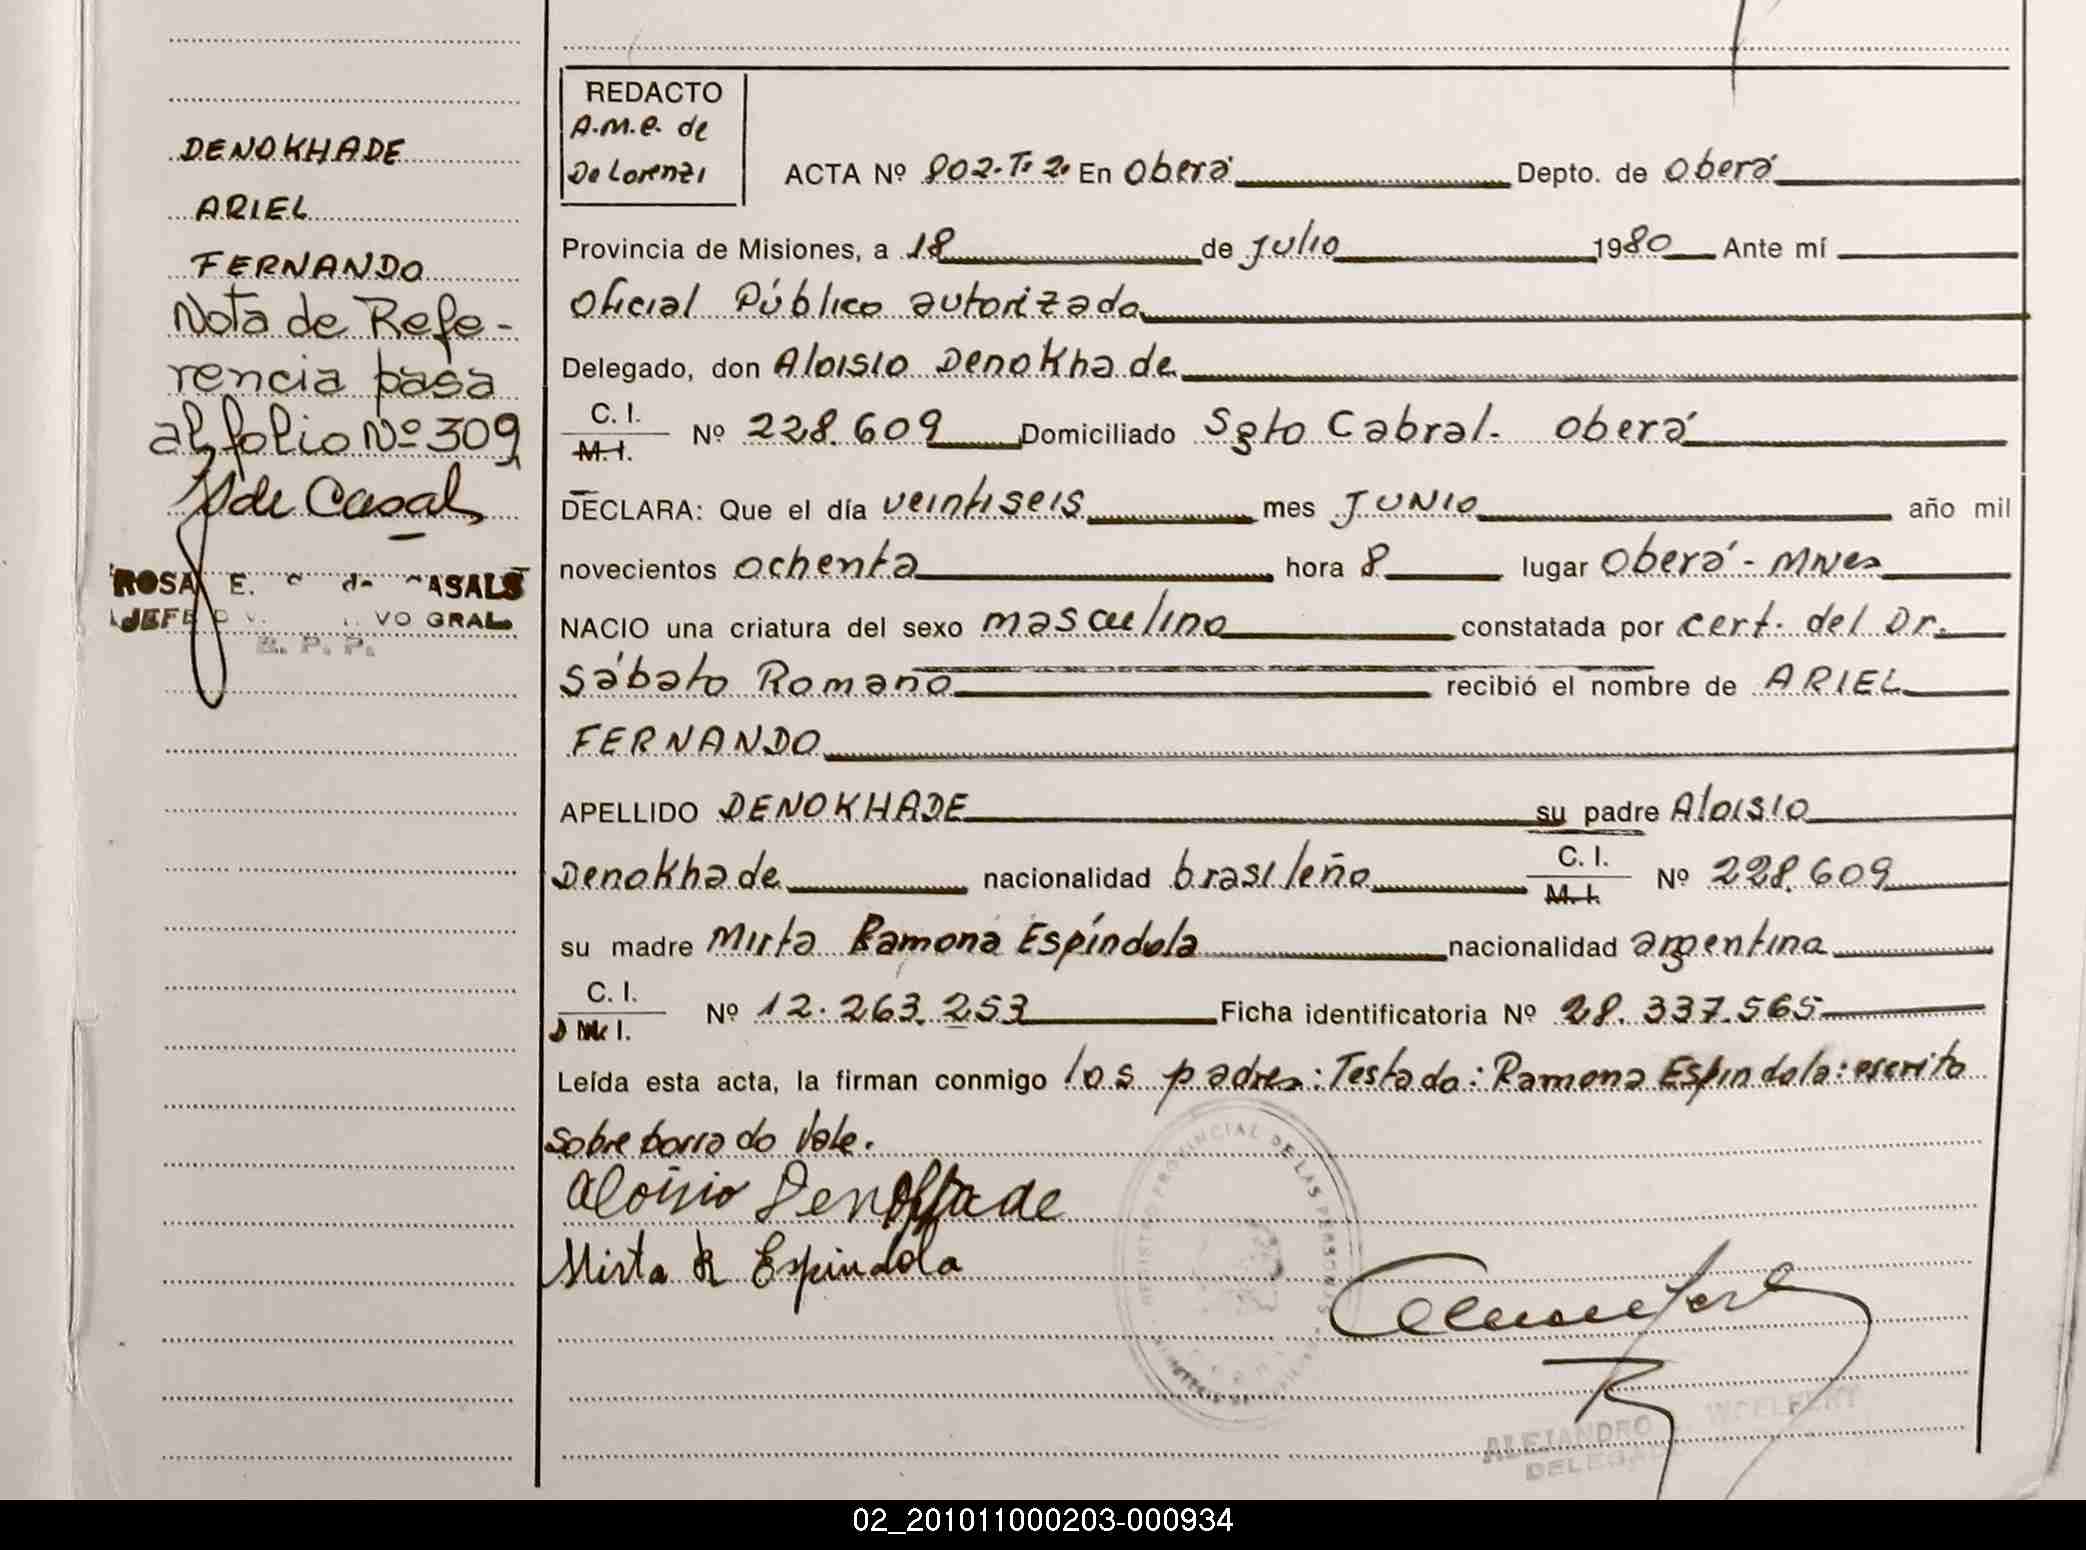 DENOKHADE
ARIEL
FERNANDO
Nota de Refe-
rencia pasa
al folio Nº 309
de Casal
ROSA E. de CASALS
JEFE VO GRAL.
R. P. P.
REDACTO
A.M.E. de
De Lorenzi
ACTA Nº 802.Tº 2. En Oberá Depto. de Oberá
Provincia de Misiones, a 18 de Julio 1980 Ante mí
Oficial Público autorizado
Delegado, don Aloisio Denokhade
C. I.
M. I. Nº 228.609 Domiciliado Sgto Cabral- Oberá
DECLARA: Que el día veintiseis mes JUNIO año mil
novecientos ochenta hora 8 lugar Oberá - Mnes
NACIO una criatura del sexo masculino constatada por cert. del Dr.
Sábato Romano recibió el nombre de ARIEL
FERNANDO
APELLIDO DENOKHADE su padre Aloisio
Denokhade nacionalidad brasileña C. I.
M. I. Nº 228.609
su madre Mirta Ramona Espíndola nacionalidad argentina
C. I.
I. Nº 12.263.253 Ficha identificatoria Nº 28.337.565
Leída esta acta, la firman conmigo los padres: Testado: Ramona Espindola: escrito
sobre borrado Vale.
Aloisio Denokhade
Mirta R Espindola
REGISTRO PROVINCIAL DE LAS PERSONAS
ALEJANDRO
DELEGADO
02_201011000203-000934